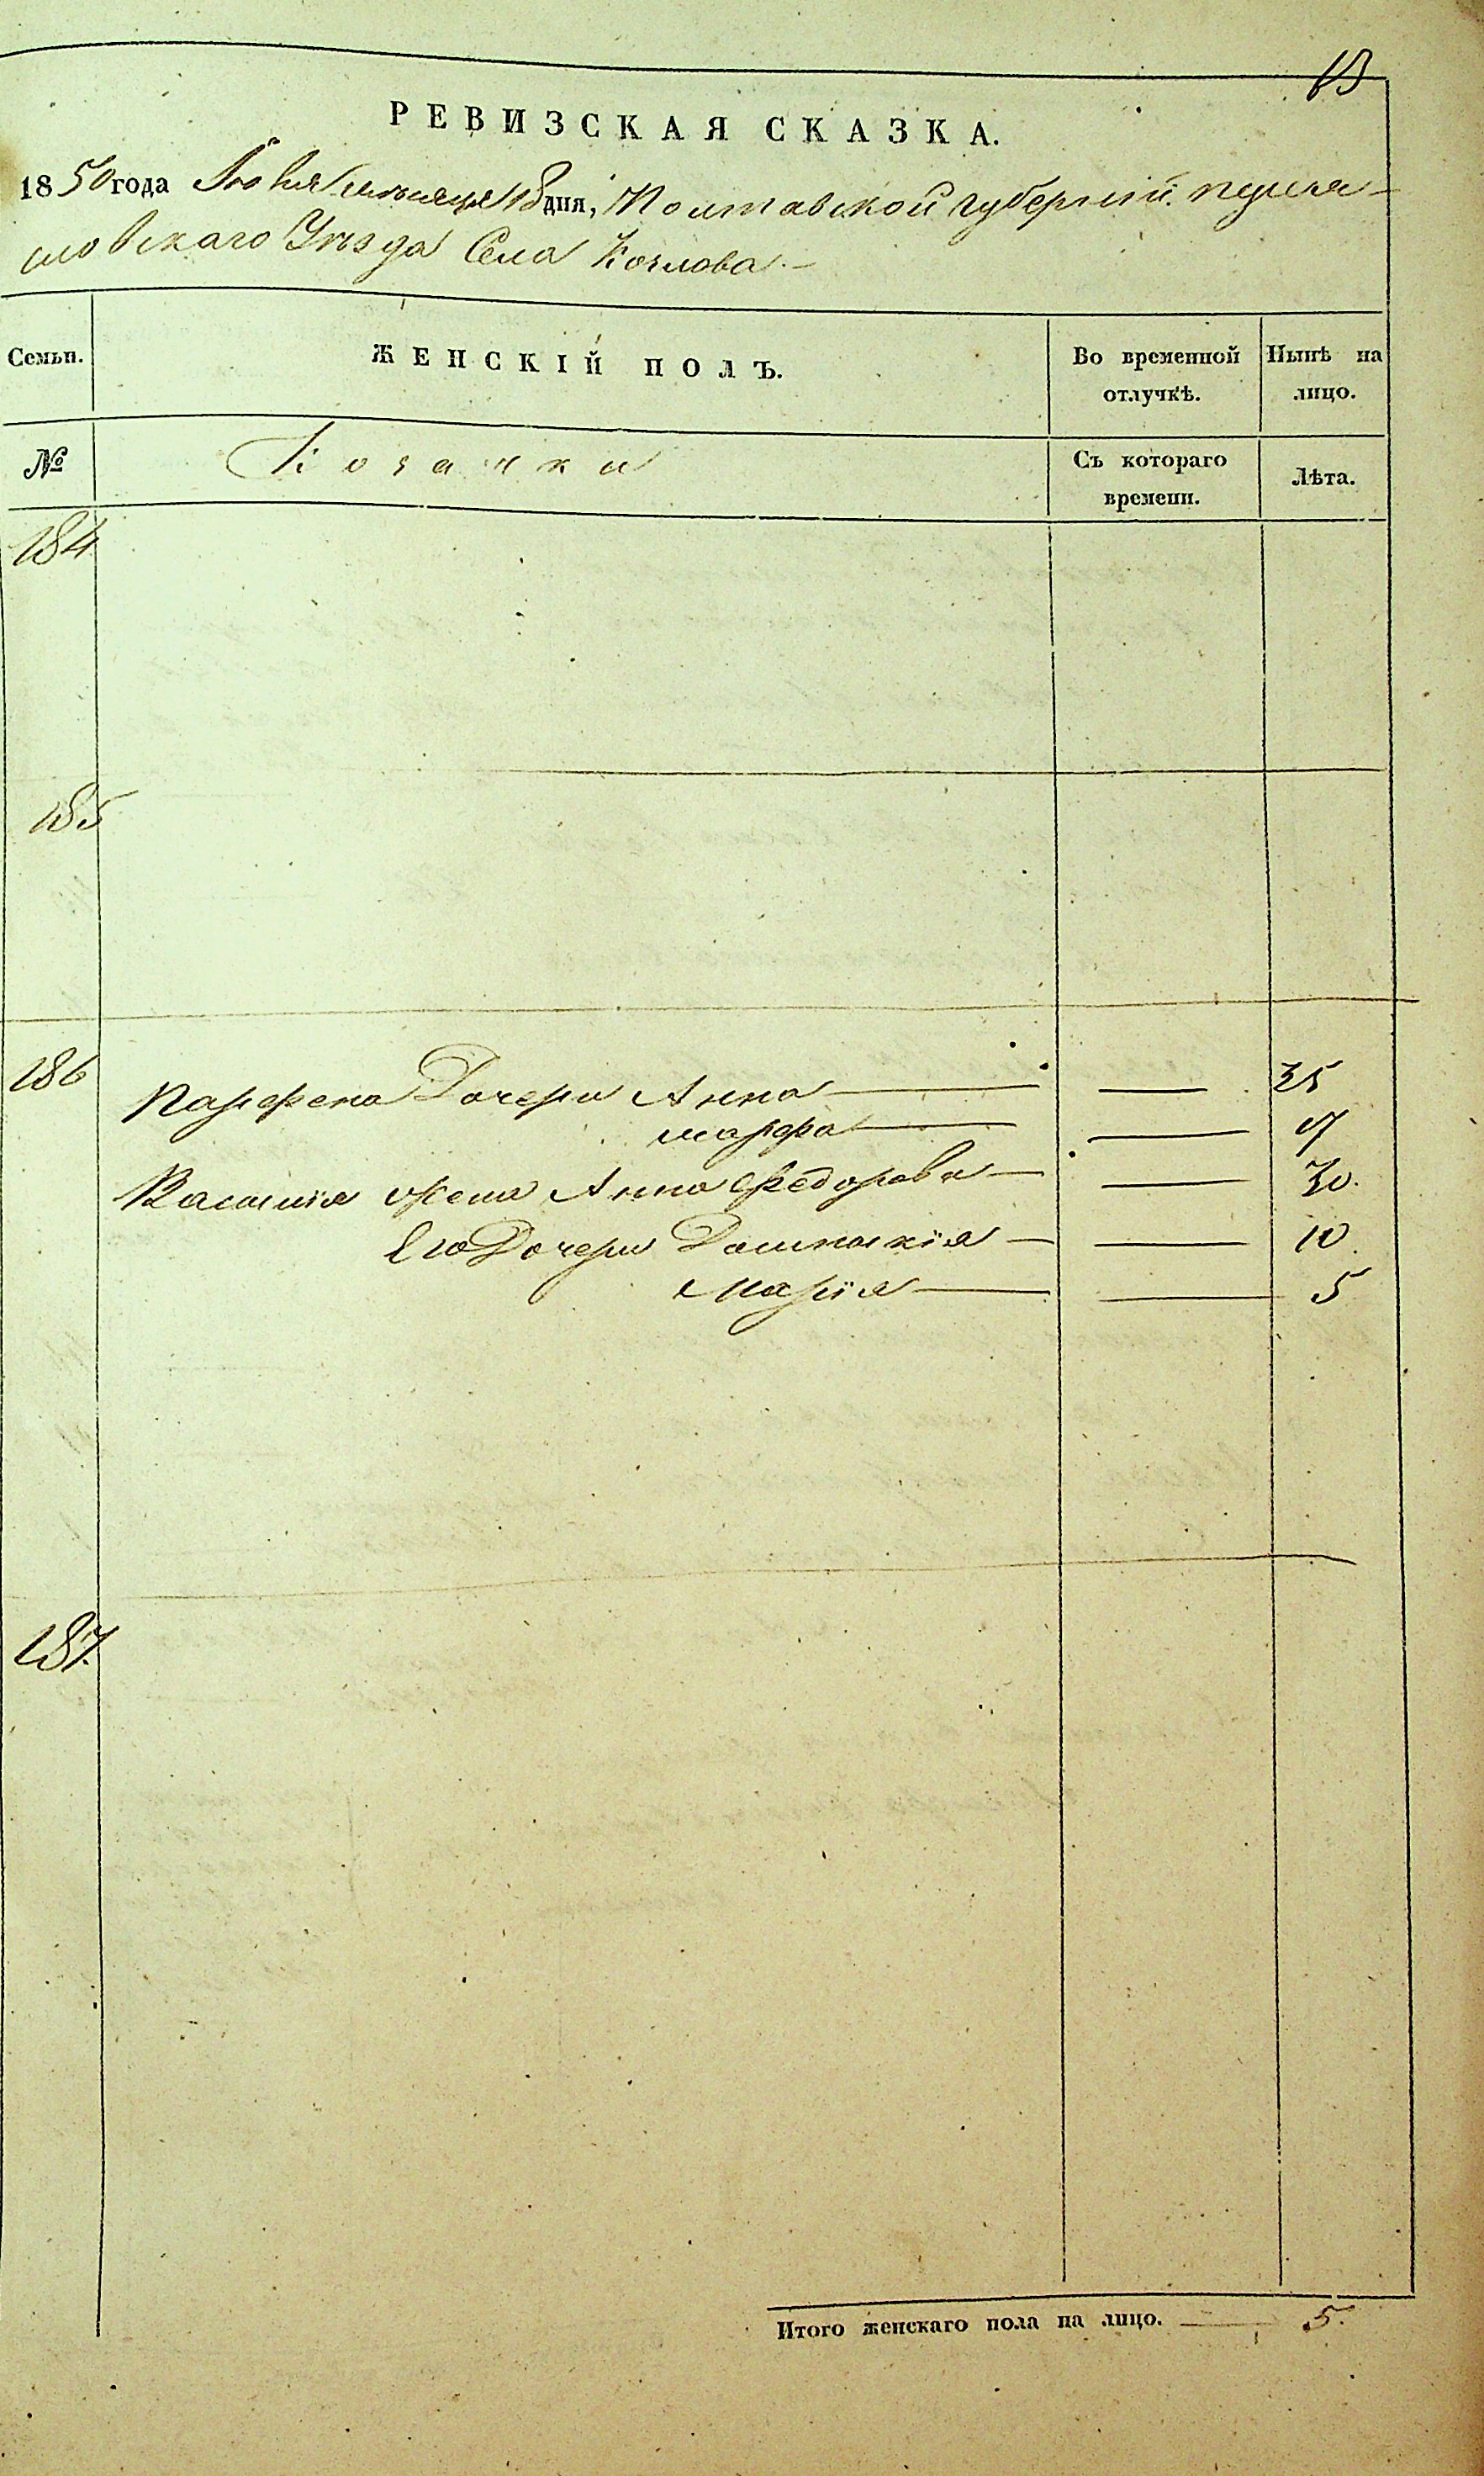 РЕВИЗСКАЯ СКАЗКА.
1850 года Июня месяца 18 дня, Полтавской губернии. переяс-
ловскаго Уезда Села Козлова. –
Семьи.
ЖЕНСКІЙ ПОЛЪ.
Во временной отлучкѣ.
Нынѣ на лицо.
№
Козачки
Съ котораго времени.
Лѣта.
184
185
186
Парфена Дочери Анна — — 35
марфа — —
Василия жена Анна Федорова — — 30.
Его Дочери Домникія — — 10
Марія — — 5
187.
Итого женскаго пола на лицо. — 5.